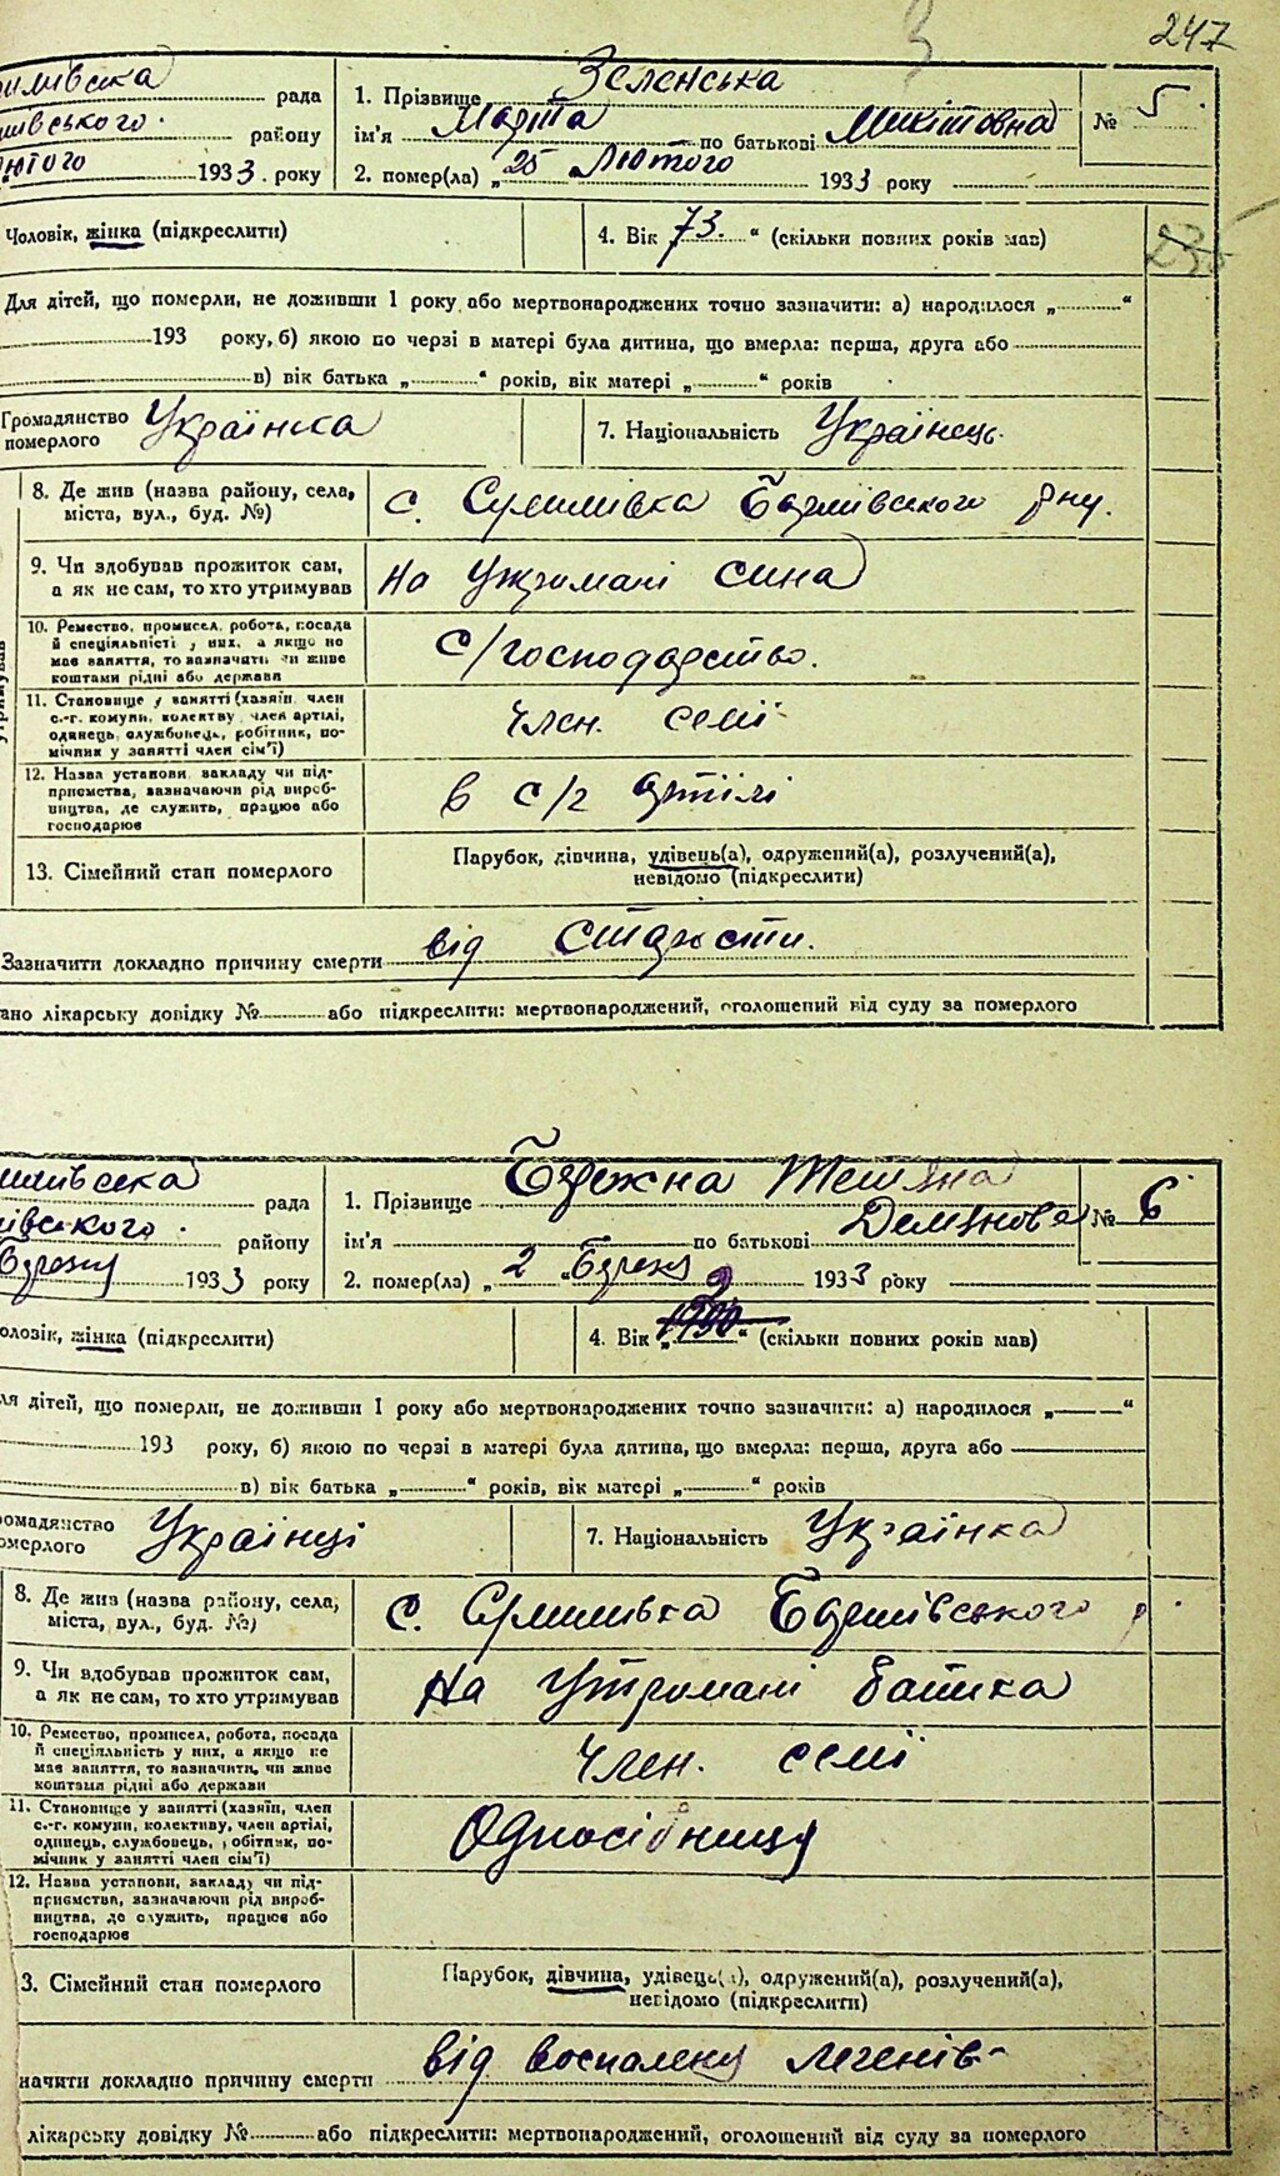 247
рада
району
1933 року
1. Прізвище Зеленська
ім'я Марта по батькові Микітовна
2. помер(ла) „25 Лютого 1933 року
№ 5
Чоловік, жінка (підкреслити)
4. Вік „73.“ (скільки повних років мав)
Для дітей, що померли, не доживши 1 року або мертвонароджених точно зазначити: а) народилося „ “
193 року, б) якою по черзі в матері була дитина, що вмерла: перша, друга або
в) вік батька „ “ років, вік матері „ “ років
Громадянство померлого Українка
7. Національність Українець.
8. Де жив (назва району, села, міста, вул., буд. №)
с. Сулимівка Баришівського р-ну.
9. Чи здобував прожиток сам, а як не сам, то хто утримував
На утримані сина
10. Ремество, промисел, робота, посада й спеціяльність у них, а якщо не має заняття, то зазначити чи живе коштами рідні або держави
С/господарство.
11. Становище у занятті (хазяїн, член с.-г. комуни, колективу член артілі, одинець, службовець, робітник, помічник у занятті член сім'ї)
Член. семї
12. Назва установи закладу чи підприємства, зазначаючи рід виробництва, де служить, працює або господарює
в с/г артілі
13. Сімейний стан померлого
Парубок, дівчина, удівець(а), одружений(а), розлучений(а),
невідомо (підкреслити)
Зазначити докладно причину смерти від старости.
лікарську довідку № або підкреслити: мертвонароджений, оголошений від суду за померлого
рада
району
1933 року
1. Прізвище Бережна Тетяна
ім'я по батькові Демянова
2. помер(ла) „2 1933 року
№ 6
жінка (підкреслити)
4. Вік „ “ (скільки повних років мав)
дітей, що померли, не доживши 1 року або мертвонароджених точно зазначити: а) народилося „ “
193 року, б) якою по черзі в матері була дитина, що вмерла: перша, друга або
в) вік батька „ “ років, вік матері „ “ років
Українці
7. Національність Українка
8. Де жив (назва району, села, міста, вул., буд. №)
с. Сулимівка Баришівського р.
9. Чи здобував прожиток сам, а як не сам, то хто утримував
На утримані батька
10. Ремество, промисел, робота, посада й спеціяльність у них, а якщо не має заняття, то зазначити, чи живе коштами рідні або держави
Член. семї
11. Становище у занятті (хазяїн, член с.-г. комуни, колективу, член артілі, одинець, службовець, робітник, помічник у занятті член сім'ї)
12. Назва установи, закладу чи підприємства, зазначаючи рід виробництва, де служить, працює або господарює
3. Сімейний стан померлого
Парубок, дівчина, удівець(а), одружений(а), розлучений(а),
невідомо (підкреслити)
докладно причину смерти від воспаленя легенів
лікарську довідку № або підкреслити: мертвонароджений, оголошений від суду за померлого